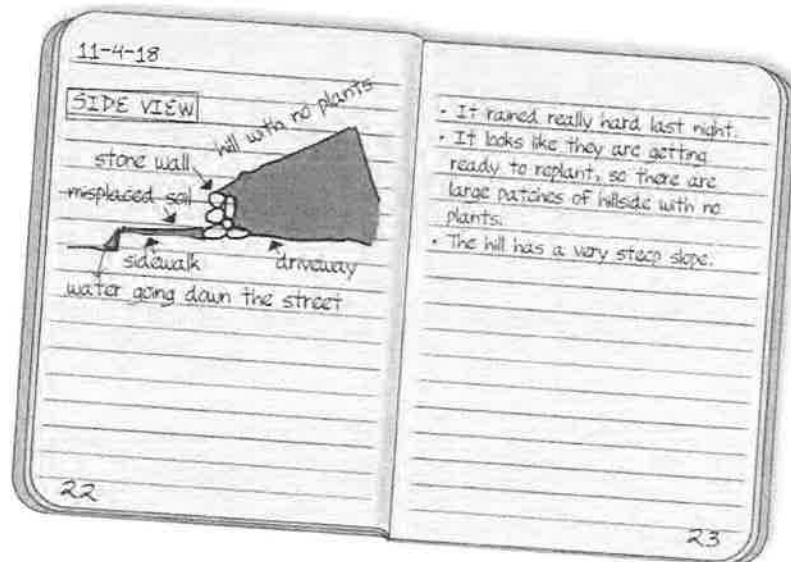 11-4-18
SIDE VIEW
hill with no plants
stone wall
misplaced soil
sidewalk
driveway
water going down the street
22
• It rained really hard last night.
• It looks like they are getting
ready to replant, so there are
large patches of hillside with no
plants.
• The hill has a very steep slope.
23